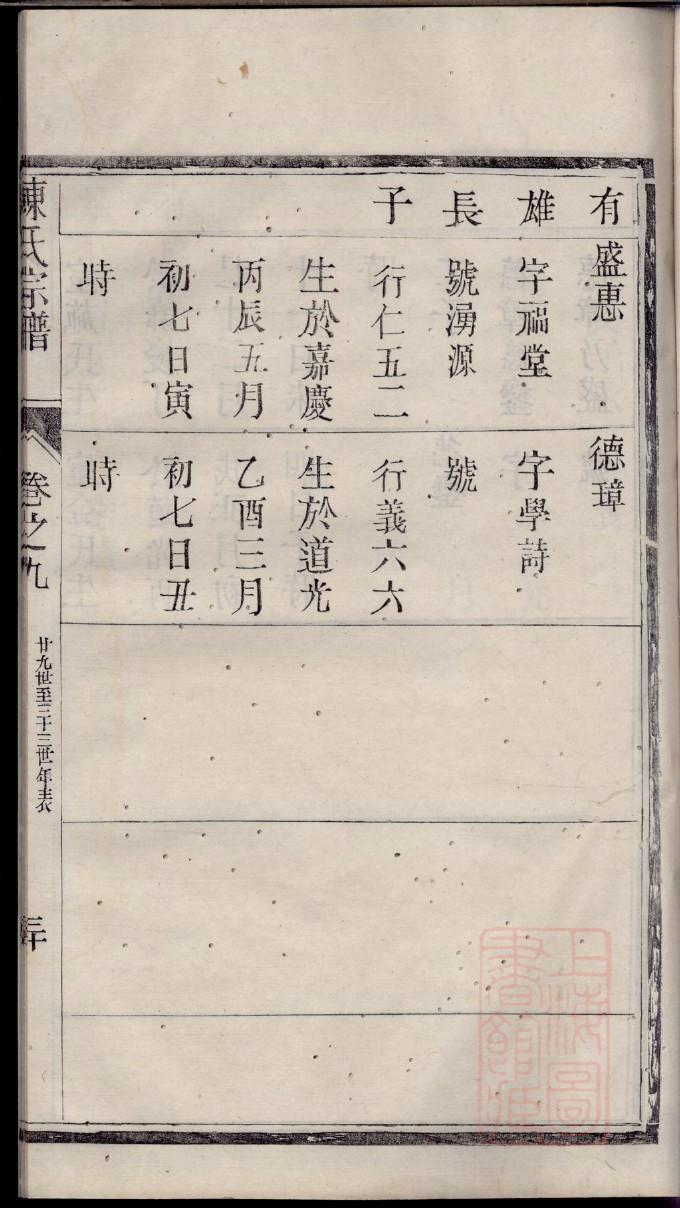 有雄長子
盛惠
字福堂
號湧源
行仁五二
生於嘉慶
丙辰五月
初七日寅
時
德璋
字學詩
號
行義六六
生於道光
乙酉三月
初七日丑
時
陳氏宗譜
卷之九
廿九世至三十三世年表
三十
上海圖
書館藏